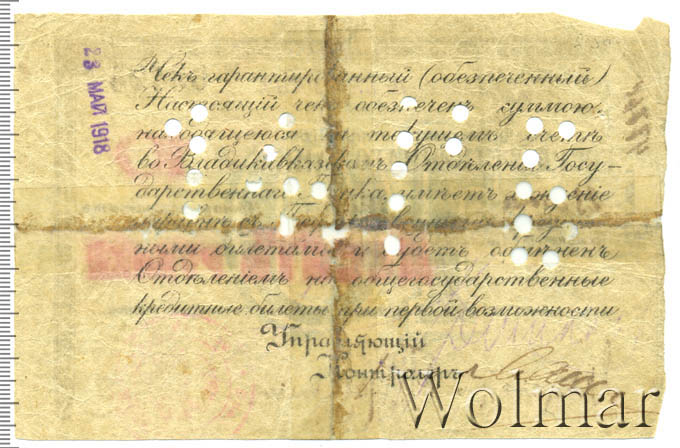 23 МАЙ 1918
Чекъ гарантированный (обезпеченный)
Настоящій чекъ обезпеченъ суммою,
находящеюся на текущемъ счетѣ
во Владикавказскомъ Отдѣленіи Госу-
дарственнаго Банка, имѣетъ хожденіе
наравнѣ съ
ными билетами и будетъ обмѣненъ
Отдѣленіемъ на общегосударственные
кредитные билеты при первой возможности.
Управляющій
Контролеръ
Wolmar